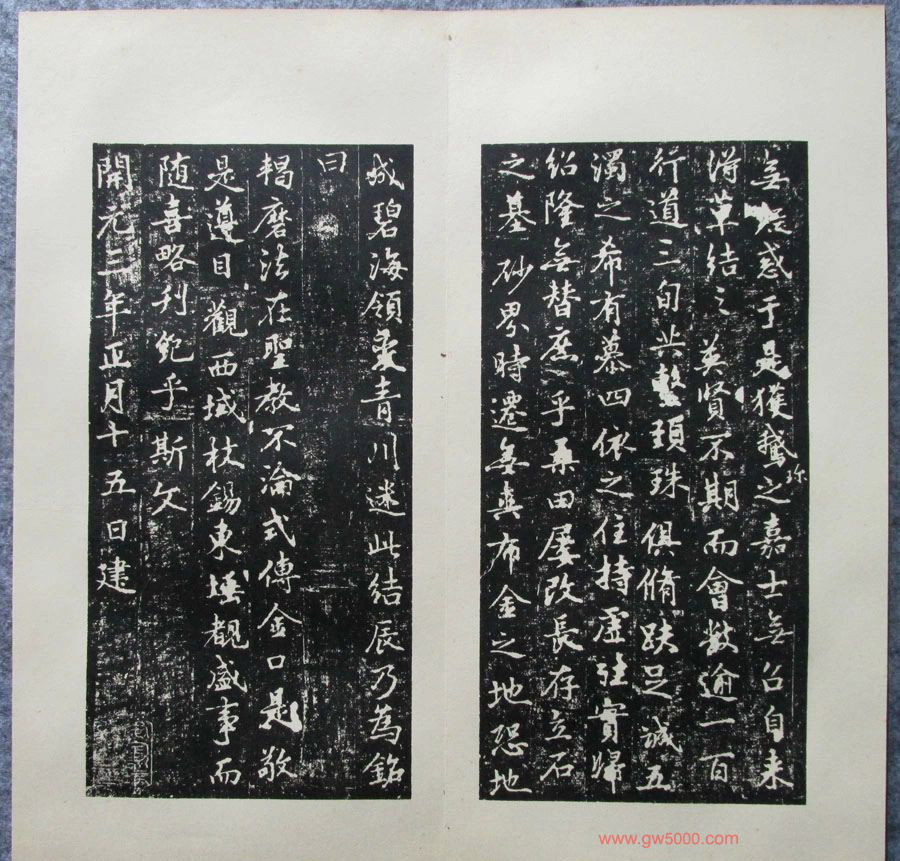 無疑惑于是獲鵝珎之嘉士無召自来
得草結之英賢不期而會數逾一百
行道三旬共珠俱脩趺足誠五
濁之希有慕四依之住持虛往實歸
紹隆無替庶乎桑田屢改長存立石
之基砂界時遷無爽布金之地恐地
成碧海領變青川迷此結辰乃為銘
曰
羯磨法在聖教不淪式傳金口是敬
是遵目觀西域杖錫東垂觀盛事而
随喜略利範乎斯文
開元三年正月十五日建
www.gw5000.com